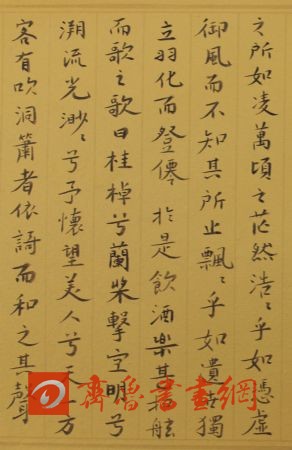 之所如凌萬頃之茫然浩〻乎如馮虛
御風而不知其所止飄〻乎如遺世獨
立羽化而登僊於是飲酒樂甚扣舷
而歌之歌曰桂棹兮蘭槳擊空明兮
溯流光渺〻兮予懷望美人兮天一方
客有吹洞簫者依謌而和之其聲
齊魯書畫網